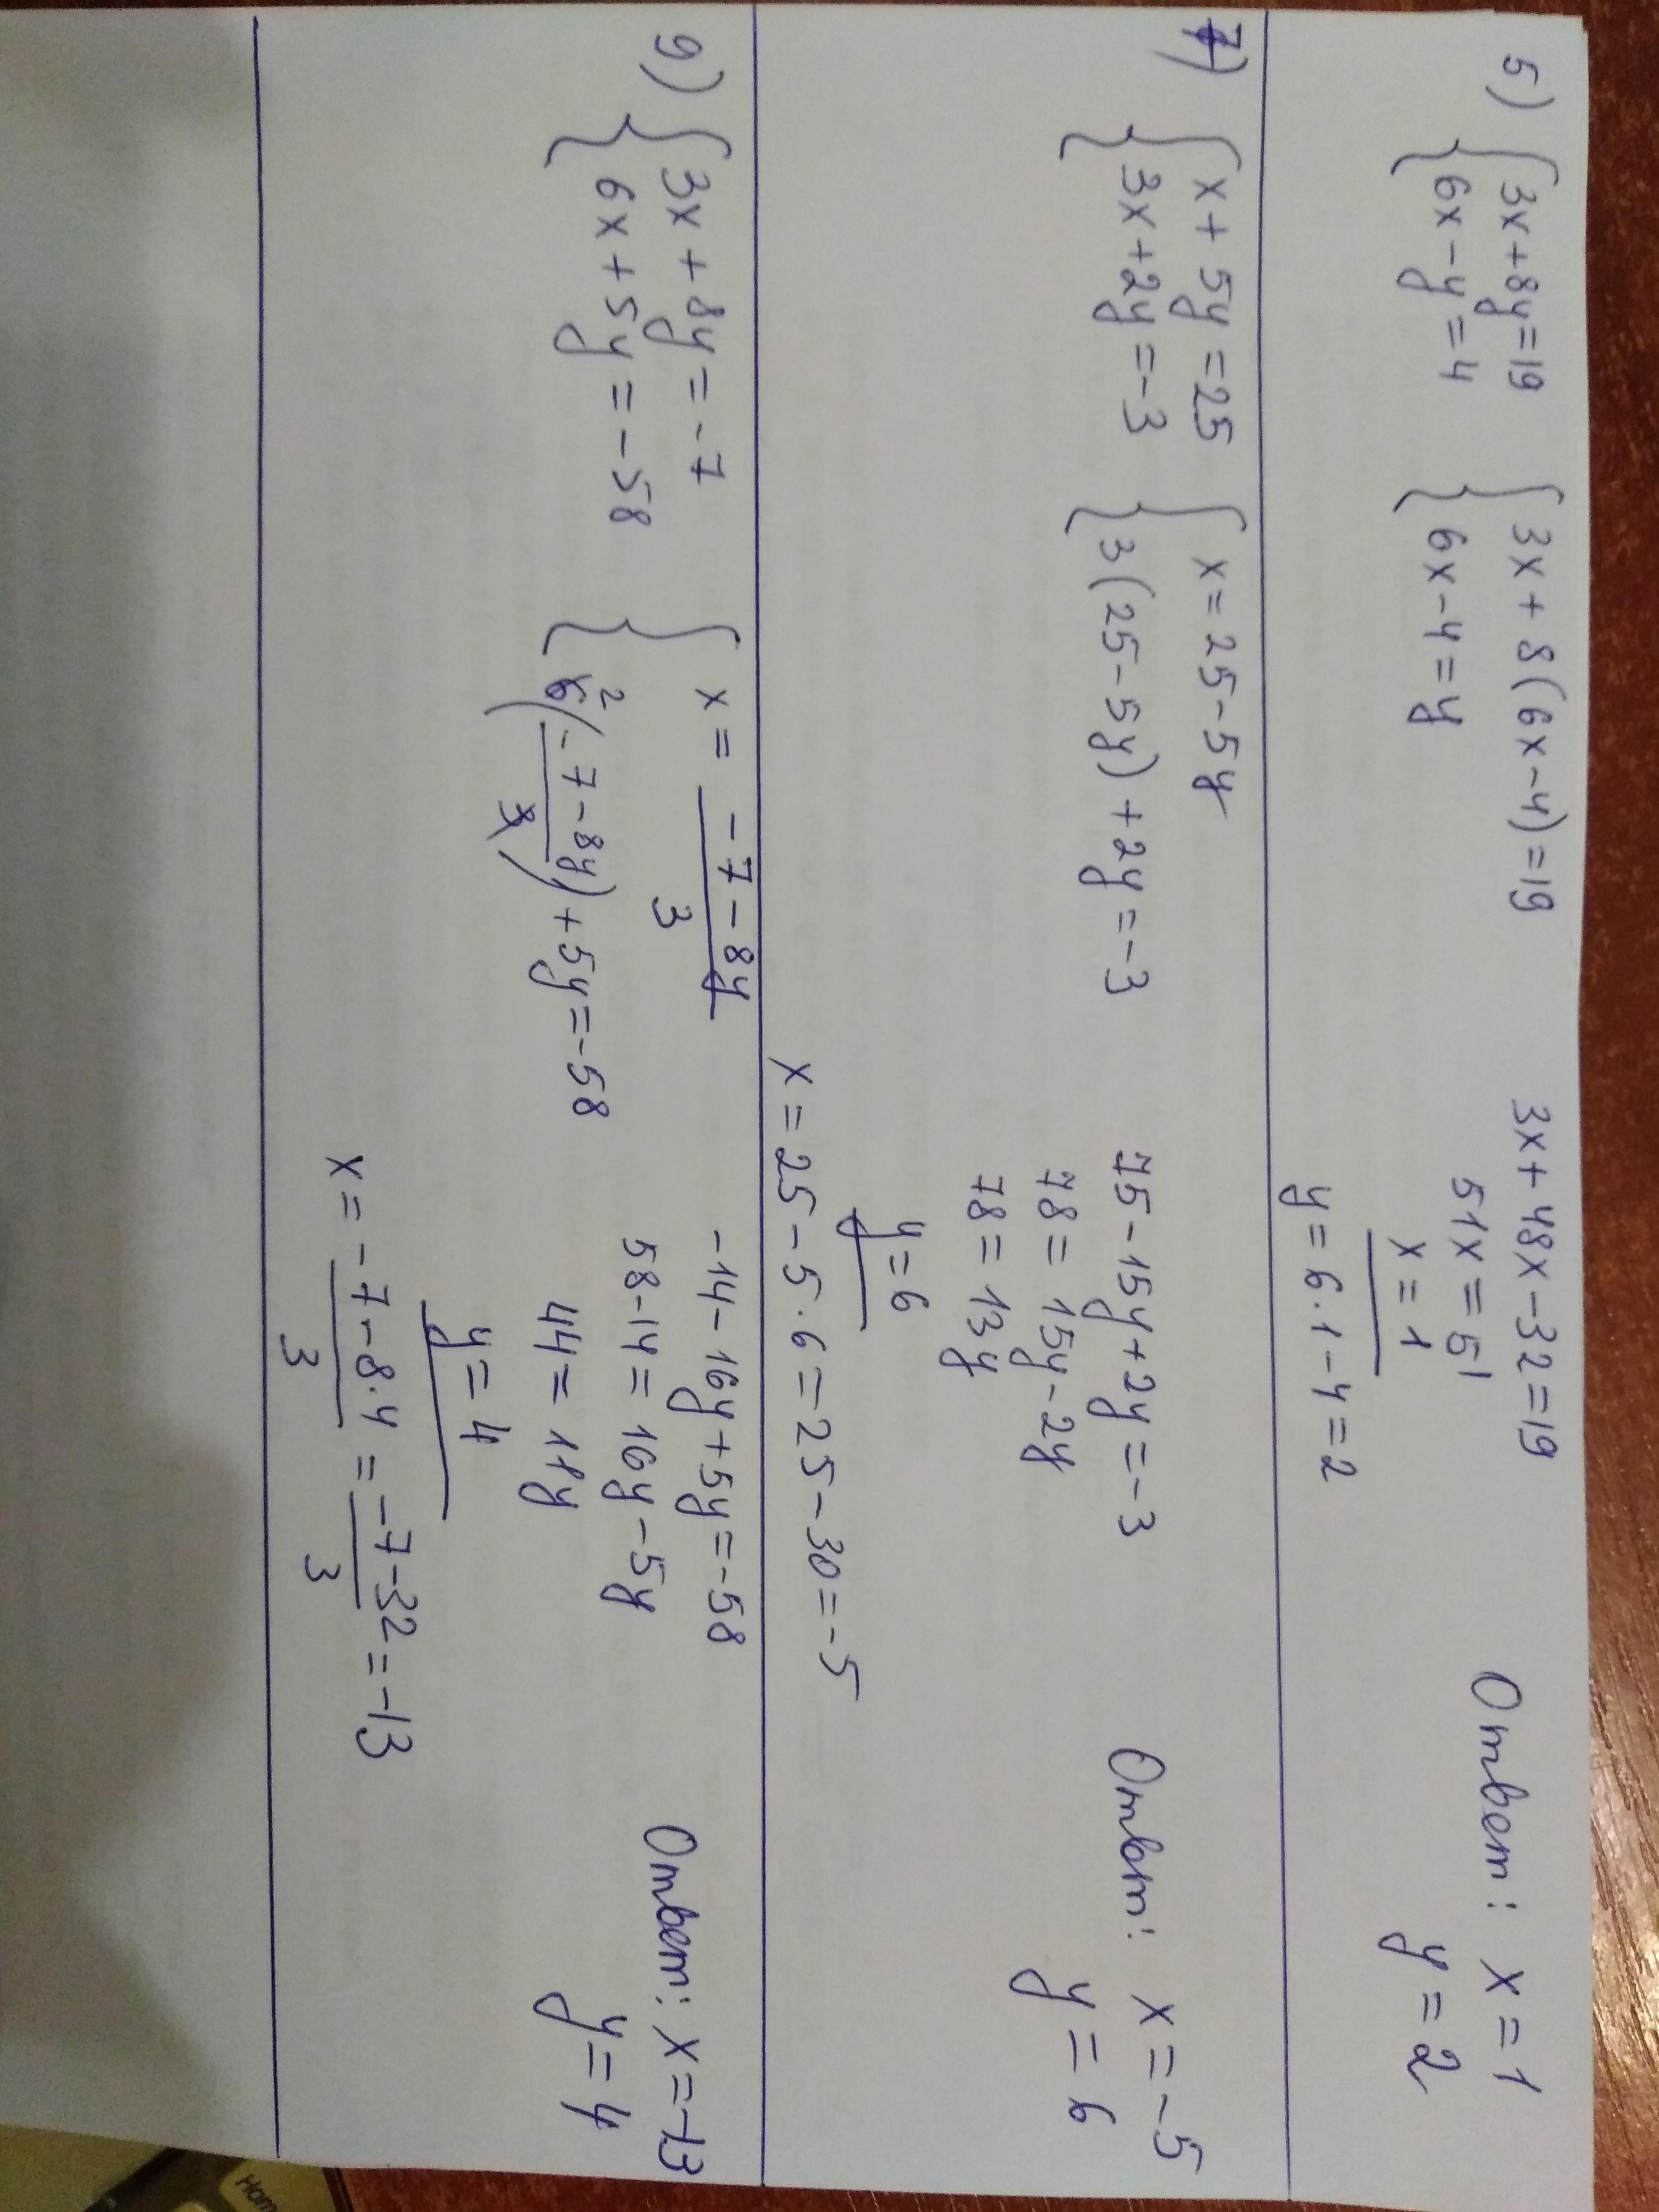 5) { 3x+8y=19
6x-y=4
{ 3x+8(6x-4)=19
6x-4=y
3x+48x-32=19
51x=51
x=1
y=6·1-4=2
Ответ: x=1
y=2
7) { x+5y=25
3x+2y=-3
{ x=25-5y
3(25-5y)+2y=-3
75-15y+2y=-3
78=15y-2y
78=13y
y=6
x=25-5·6=25-30=-5
Ответ: x=-5
y=6
9) { 3x+8y=-7
6x+5y=-58
{ x=-7-8y
3
2
6(-7-8y)+5y=-58
3
-14-16y+5y=-58
58-14=16y-5y
44=11y
y=4
x=-7-8·4=-7-32=-13
3 3
Ответ: x=-13
y=4
Hom